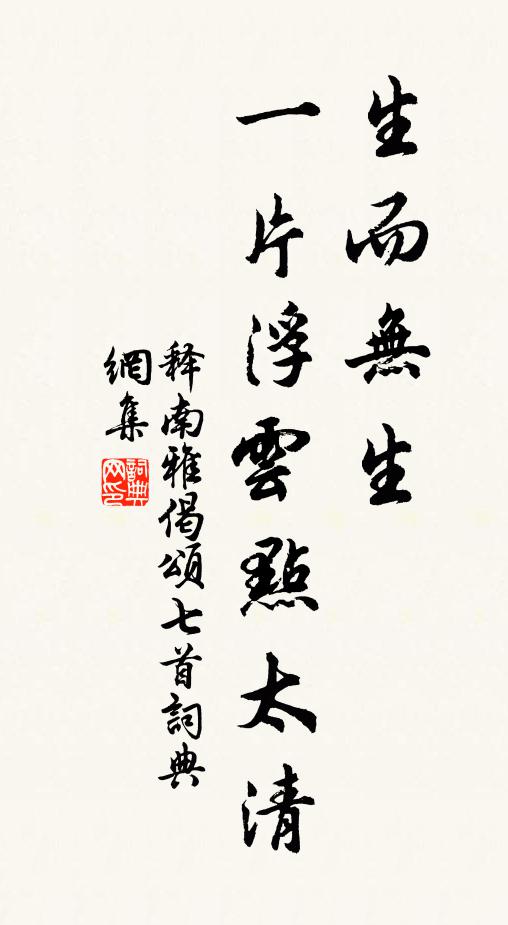 生而無生
一片浮雲點太清
释南雅偈頌七首詞典
網集
詞典網印